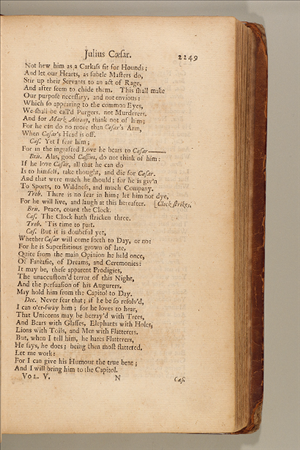 Julius Cæsar. 2249
Not hew him as a Carkass fit for Hounds;
And let our Hearts, as subtle Masters do,
Stir up their Servants to an act of Rage,
And after seem to chide them. This shall make
Our purpose necessary, and not envious:
Which so appearing to the common Eyes,
We shall be call'd Purgers, not Murderers.
And for Mark Antony, think not of him;
For he can do no more than Cæsar's Arm,
When Cæsar's Head is off.
Cas. Yet I fear him;
For in the ingrafted Love he bears to Cæsar——
Bru. Alas, good Cassius, do not think of him:
If he love Cæsar, all that he can do
Is to himself, take thought, and die for Cæsar.
And that were much he should; for he is giv'n
To Sports, to Wildness, and much Company.
Treb. There is no fear in him; let him not dye,
For he will live, and laugh at this hereafter. [Clock strikes,
Bru. Peace, count the Clock.
Cas. The Clock hath stricken three.
Treb. 'Tis time to part.
Cas. But it is doubtful yet,
Whether Cæsar will come forth to Day, or no:
For he is Superstitious grown of late,
Quite from the main Opinion he held once,
Of Fantasie, of Dreams, and Ceremonies:
It may be, these apparent Prodigies,
The unaccustom'd terror of this Night,
And the perswasion of his Augurers,
May hold him from the Capitol to Day.
Dec. Never fear that; if he be so resolv'd,
I can o'er-sway him; for he loves to hear,
That Unicorns may be betray'd with Trees,
And Bears with Glasses, Elephants with Holes,
Lions with Toils, and Men with Flatterers.
But, when I tell him, he hates Flatterers,
He says, he does; being then most flattered.
Let me work:
For I can give his Humour the true bent;
And I will bring him to the Capitol.
Vol. V. N Cas.